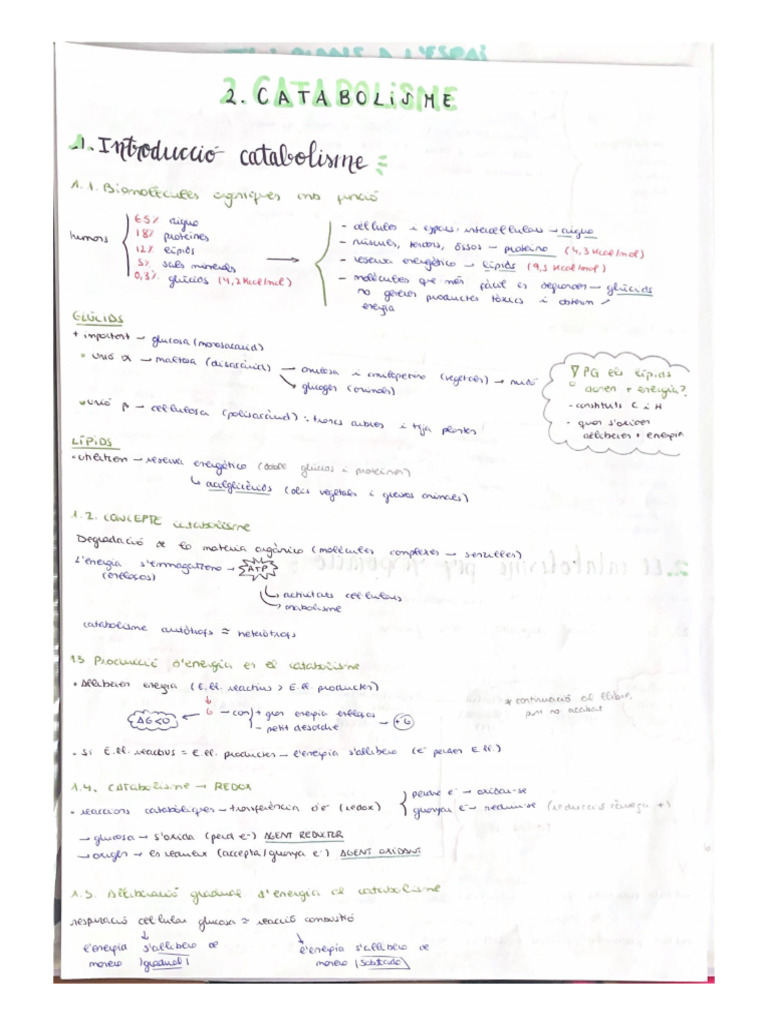 2. CATABOLISME
1. Introducció catabolisme
1.1. Biomolècules orgàniques i no funció
humans
65% aigua
18% proteïnes
12% lípids
5% sals minerals
0,3% glúcids (4,2 Kcal/mol)
- cèl·lules i espais intercel·lulars → aigua
- músculs, tendons, ossos → proteïna (4,3 Kcal/mol)
- reserva energètica → lípids (9,5 Kcal/mol)
- molècules que més fàcil es degraden → glúcids
no generen productes tòxics i obtenim
energia
GLÚCIDS
+ important → glucosa (monosacàrid)
• unió α → maltosa (disacàrid) → amilosa i amilopectina (vegetals) → midó
glucogen (animals)
• unió β → cel·lulosa (polisacàrid) : troncs arbres i teja plantes
? PQ els lípids
donen + energia?
- constituïts C i H
- quan s'oxiden
alliberen + energia
LÍPIDS
• utilitzen → reserva energètica (doble glúcids i proteïnes)
acilglicèrids (olis vegetals i greixos animals)
1.2. CONCEPTE catabolisme
Degradació de la matèria orgànica (molècules complexes → senzilles)
L'energia s'emmagatzema → ATP
(enllaços)
activitats cel·lulars
anabolisme
catabolisme autòtrofs ≈ heteròtrofs
1.3 Producció d'energia en el catabolisme
• Alliberen energia (E.ll. reactius > E.ll. productes)
G → con
+ gran energia enllaços
- petit desordre
+G
ΔG<0
* continuació al llibre,
pum no acabat
• Si E.ll. reactius = E.ll. productes → l'energia s'allibera (e⁻ perden E.ll.)
1.4. CATABOLISME → REDOX
• reaccions catabòliques → transferència d'e⁻ (redox)
perdre e⁻ → oxidar-se
guanyar e⁻ → reduir-se
→ glucosa → s'oxida (perd e⁻) AGENT REDUCTOR
→ oxigen → es redueix (accepta/guanya e⁻) AGENT OXIDANT
1.5. Alliberació gradual d'energia al catabolisme
respiració cel·lular glucosa ≈ reacció combustió
l'energia s'allibera de
manera gradual
l'energia s'allibera de
manera sobtada